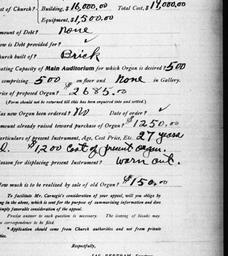 of Church? Building, $16,000.00 Total Cost, $17,000.00
Equipment, $1,500.00
mount of Debt? None
ow is Debt provided for? ✓
urch built of? Brick
ating Capacity of Main Auditorium for which Organ is desired? 500
comprising 500 on floor and None in Gallery.
rice of proposed Organ? $2685.00
(Form should not be returned till this has been enquired into and settled.)
as new Organ been ordered? No Date of order? ✓
mount already raised toward purchase of Organ? $1250.00
articulars of present Instrument, Age, Cost Price, Etc. 27 years
$1200 Cost of present organ.
eason for displacing present Instrument? Worn out.
ow much is to be realised by sale of old Organ? $150.00
To facilitate Mr. Carnegie's consideration of your appeal, will you oblige by
ing in the above, which is sent for the purpose of summarizing information and
mply favorable consideration of the appeal.
Precise answer to each question is necessary. The issuing of blanks may
correspondence to be filed.
* Application should come from Church authorities and not from private
Respectfully,
JAS. BERTRAM,